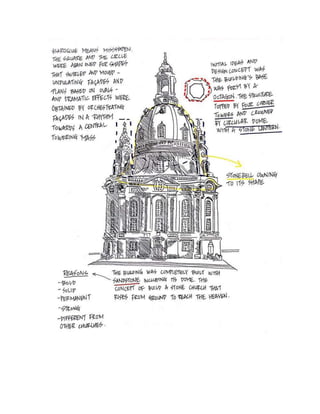 BAROQUE MEANS MISSHAPEN.
THE SQUARE AND THE CIRCLE
WERE ABANDONED FOR SHAPES
THAT SWIRLED AND MOVED -
UNDULATING FAÇADES AND
PLANS BASED ON OVALS -
AND DRAMATIC EFFECTS WERE
OBTAINED BY ORCHESTRATING
FAÇADES IN A RHYTHM
TOWARDS A CENTRAL
TOWERING MASS
INITIAL IDEAS AND
DESIGN CONCEPT WAS
THE BUILDING'S BASE
WAS FORMED BY A
OCTAGON. THE STRUCTURE
TOPPED BY FOUR CORNER
TOWERS AND CROWNED
BY CIRCULAR DOME
WITH A STONE LANTERN.
STONE BELL OWNING
TO ITS SHAPE
REASONS
- BOLD
- SOLID
- PERMANENT
- STRONG
- DIFFERENT FROM
OTHER CHURCHES.
THE BUILDING WAS COMPLETELY BUILT WITH
SANDSTONE INCLUDING ITS DOME. THE
CONCEPT OF BUILD A STONE CHURCH THAT
RISES FROM GROUND TO REACH THE HEAVEN.